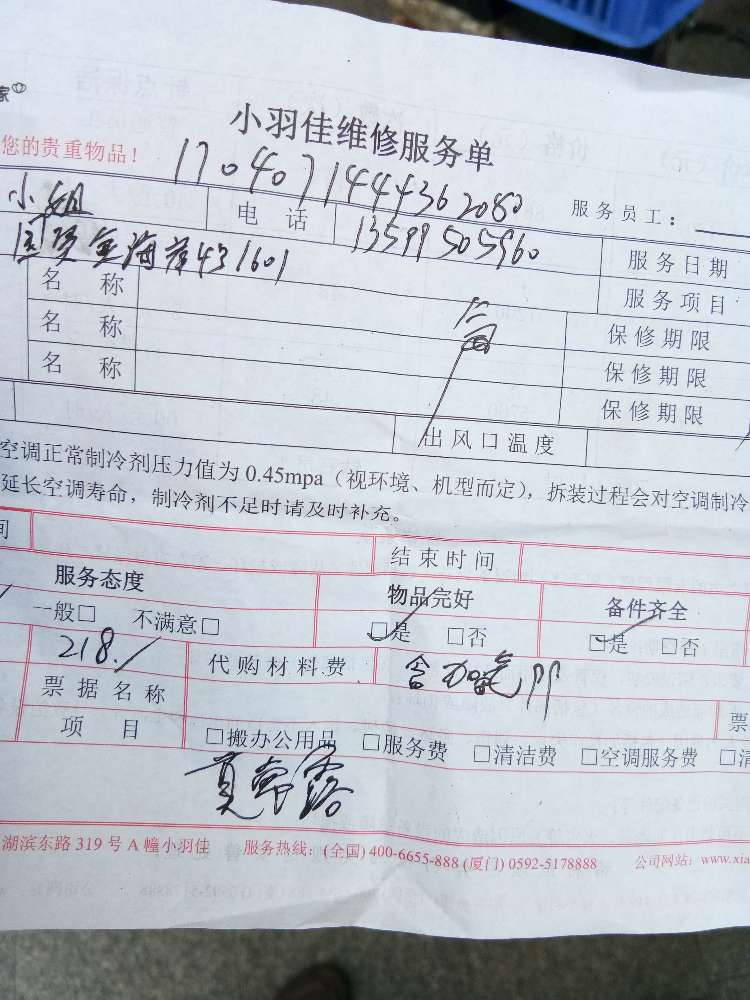 家
小羽佳维修服务单
您的贵重物品！ 1704071444362080 服务员工：
小姐 电话 13599505960 服务日期
国贸金海岸431601 服务项目
名称 保修期限
名称 保修期限
名称 保修期限
出风口温度
空调正常制冷剂压力值为 0.45mpa（视环境、机型而定），拆装过程会对空调制冷
延长空调寿命，制冷剂不足时请及时补充。
间 结束时间
服务态度 物品完好 备件齐全
一般□ 不满意□ □是 □否 □是 □否
218. 代购材料费 含加
票据名称 票
项目 □搬办公用品 □服务费 □清洁费 □空调服务费 □清
湖滨东路 319 号 A 幢小羽佳 服务热线：(全国) 400-6655-888 (厦门) 0592-5178888 公司网站：www.xia